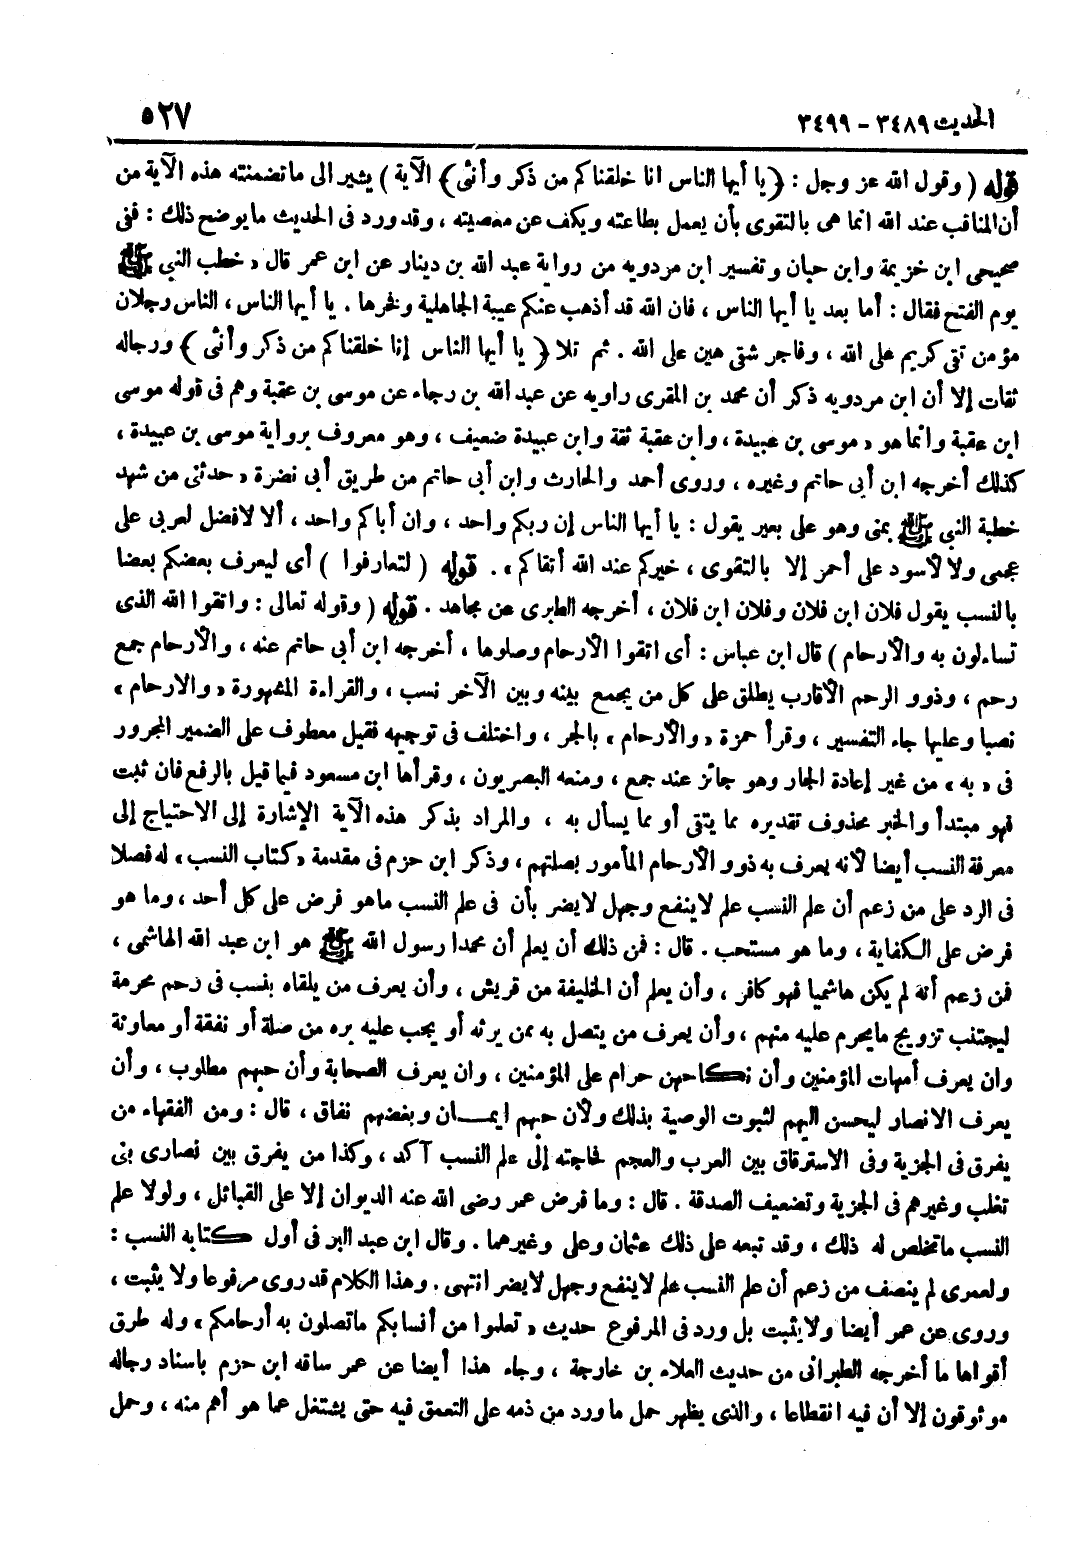 الحديث ٣٤٨٩ - ٣٤٩٩
٥٢٧
قوله ( وقول الله عز وجل : ﴿ يا أيها الناس انا خلقناكم من ذكر وأنثى ﴾ الآية ) يشير الى ماتضمنته هذه الآية من
أن المناقب عند الله انما هى بالتقوى بأن يعمل بطاعته ويكف عن معصيته ، وقد ورد فى الحديث مايوضح ذلك : ففى
صحيحى ابن خزيمة وابن حبان وتفسير ابن مردويه من رواية عبد الله بن دينار عن ابن عمر قال « خطب النبى ﷺ
يوم الفتح فقال : أما بعد يا أيها الناس ، فان الله قد أذهب عنكم عيبة الجاهلية وفخرها . يا أيها الناس ، الناس رجلان
مؤمن تقى كريم على الله ، وفاجر شقى هين على الله . ثم تلا ﴿ يا أيها الناس إنا خلقناكم من ذكر وأنثى ﴾ ورجاله
ثقات إلا أن ابن مردويه ذكر أن محمد بن المقرى راويه عن عبد الله بن رجاء عن موسى بن عقبة وهم فى قوله موسى
ابن عقبة وانما هو « موسى بن عبيدة ، وابن عقبة ثقة وابن عبيدة ضعيف ، وهو معروف برواية موسى بن عبيدة ،
كذلك أخرجه ابن أبى حاتم وغيره ، وروى أحمد والحارث وابن أبى حاتم من طريق أبى نضرة « حدثنى من شهد
خطبة النبى ﷺ بمنى وهو على بعير يقول : يا أيها الناس إن ربكم واحد ، وان أباكم واحد ، ألا لافضل لعربى على
عجمى ولا لأسود على أحمر إلا بالتقوى ، خيركم عند الله أتقاكم » . قوله ( لتعارفوا ) أى ليعرف بعضكم بعضا
بالنسب يقول فلان ابن فلان وفلان ابن فلان ، أخرجه الطبرى عن مجاهد . قوله ( وقوله تعالى : واتقوا الله الذى
تساءلون به والأرحام ) قال ابن عباس : أى اتقوا الأرحام وصلوها ، أخرجه ابن أبى حاتم عنه ، والأرحام جمع
رحم ، وذوو الرحم الأقارب يطلق على كل من يجمع بينه وبين الآخر نسب ، والقراءة المشهورة « والارحام »
نصبا وعليها جاء التفسير ، وقرأ حمزة « والأرحام » بالجر ، واختلف فى توجيهه فقيل معطوف على الضمير المجرور
فى « به » من غير إعادة الجار وهو جائز عند جمع ، ومنعه البصريون ، وقرأها ابن مسعود فيما قيل بالرفع فان ثبت
فهو مبتدأ والخبر محذوف تقديره مما يتقى أو مما يسأل به ، والمراد بذكر هذه الآية الإشارة إلى الاحتياج إلى
معرفة النسب أيضا لأنه يعرف به ذوو الأرحام المأمور بصلتهم ، وذكر ابن حزم فى مقدمة « كتاب النسب » له فصلا
فى الرد على من زعم أن علم النسب علم لاينفع وجهل لايضر بأن فى علم النسب ماهو فرض على كل أحد ، وما هو
فرض على الكفاية ، وما هو مستحب . قال : فمن ذلك أن يعلم أن محمدا رسول الله ﷺ هو ابن عبد الله الهاشمى ،
فمن زعم أنه لم يكن هاشميا فهو كافر ، وأن يعلم أن الخليفة من قريش ، وأن يعرف من يلقاه بنسب فى رحم محرمة
ليجتنب تزويج مايحرم عليه منهم ، وأن يعرف من يتصل به ممن يرثه أو يجب عليه بره من صلة أو نفقة أو معاونة
وان يعرف أمهات المؤمنين وأن نكاحهن حرام على المؤمنين ، وان يعرف الصحابة وأن حبهم مطلوب ، وأن
يعرف الانصار ليحسن اليهم لثبوت الوصية بذلك ولأن حبهم ايمان وبغضهم نفاق ، قال : ومن الفقهاء من
يفرق فى الجزية وفى الاسترقاق بين العرب والعجم فحاجته إلى علم النسب آكد ، وكذا من يفرق بين نصارى بنى
تغلب وغيرهم فى الجزية وتضعيف الصدقة . قال : وما فرض عمر رضى الله عنه الديوان إلا على القبائل ، ولولا علم
النسب ماتخلص له ذلك ، وقد تبعه على ذلك عثمان وعلى وغيرهما . وقال ابن عبد البر فى أول كتابه النسب :
ولعمرى لم ينصف من زعم أن علم النسب علم لاينفع وجهل لايضر انتهى . وهذا الكلام قد روى مرفوعا ولا يثبت ،
وروى عن عمر أيضا ولايثبت بل ورد فى المرفوع حديث « تعلموا من أنسابكم ماتصلون به أرحامكم » وله طرق
أقواها ما أخرجه الطبرانى من حديث العلاء بن خارجة ، وجاء هذا أيضا عن عمر ساقه ابن حزم باسناد رجاله
موثوقون إلا أن فيه انقطاعا ، والذى يظهر حمل ماورد من ذمه على التعمق فيه حتى يشتغل عما هو أهم منه ، وحمل